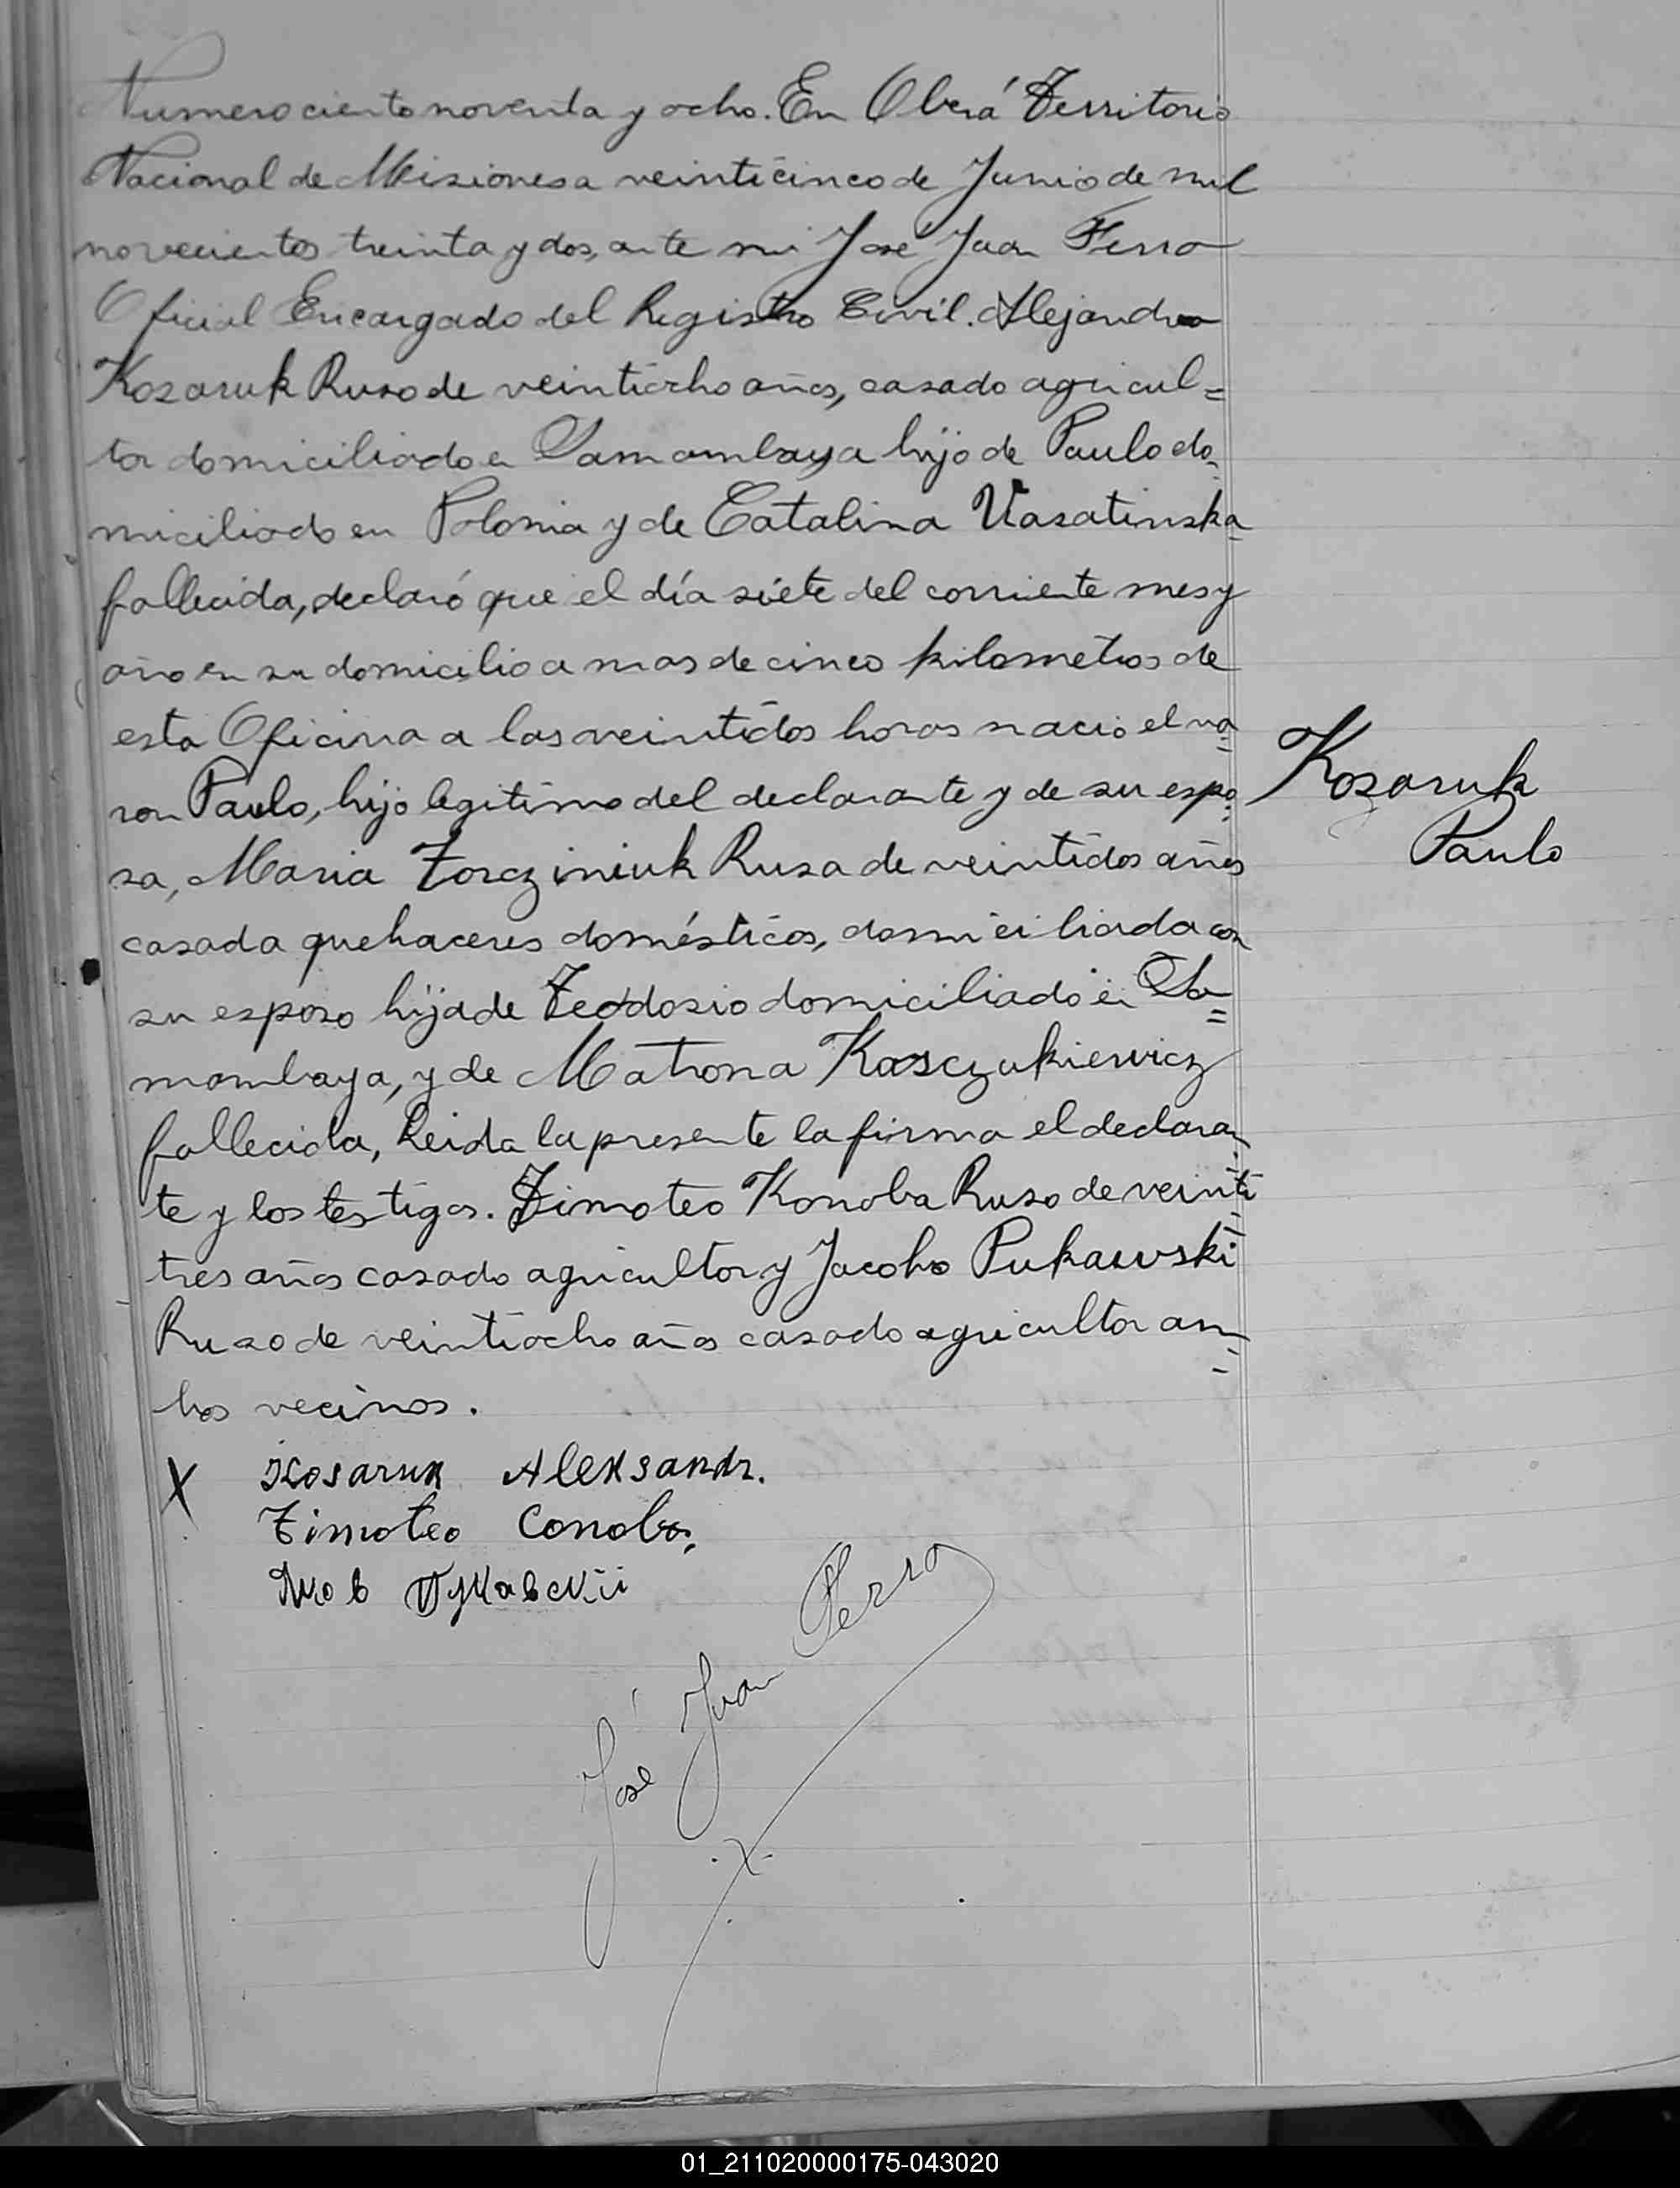 Numero ciento noventa y ocho. En Oberá Territorio
Nacional de Misiones a veinticinco de Junio de mil
novecientos treinta y dos, ante mi José Juan Ferro
Oficial Encargado del Registro Civil. Alejandro
Kozaruk Ruso de veintiocho años, casado agricul=
tor domiciliado en Samambaya hijo de Paulo do-
miciliado en Polonia y de Catalina Vasatinska
fallecida, declaró que el día siete del corriente mes y
año en su domicilio a mas de cinco kilometros de
esta Oficina a las veintidos horas nacio el va=
ron Paulo, hijo legitimo del declarante y de su espo=
sa, Maria Torcziniuk Rusa de veintidos años
casada quehaceres domésticos, domiciliada con
su esposo hija de Teodosio domiciliado en Sa=
mambaya, y de Matrona Kasczukiewicz
fallecida, Leida la presente la firma el declaran-
te y los testigos. Timoteo Konoba Ruso de veinti=
tres años casado agricultor y Jacobo Pukawski
Ruso de veintiocho años casado agricultor am=
bos vecinos.
Kozaruk
Paulo
X Kosaruk Aleksandr.
Timoteo Conoba,
Яков Пукавскіи
José Juan Ferro
01_211020000175-043020